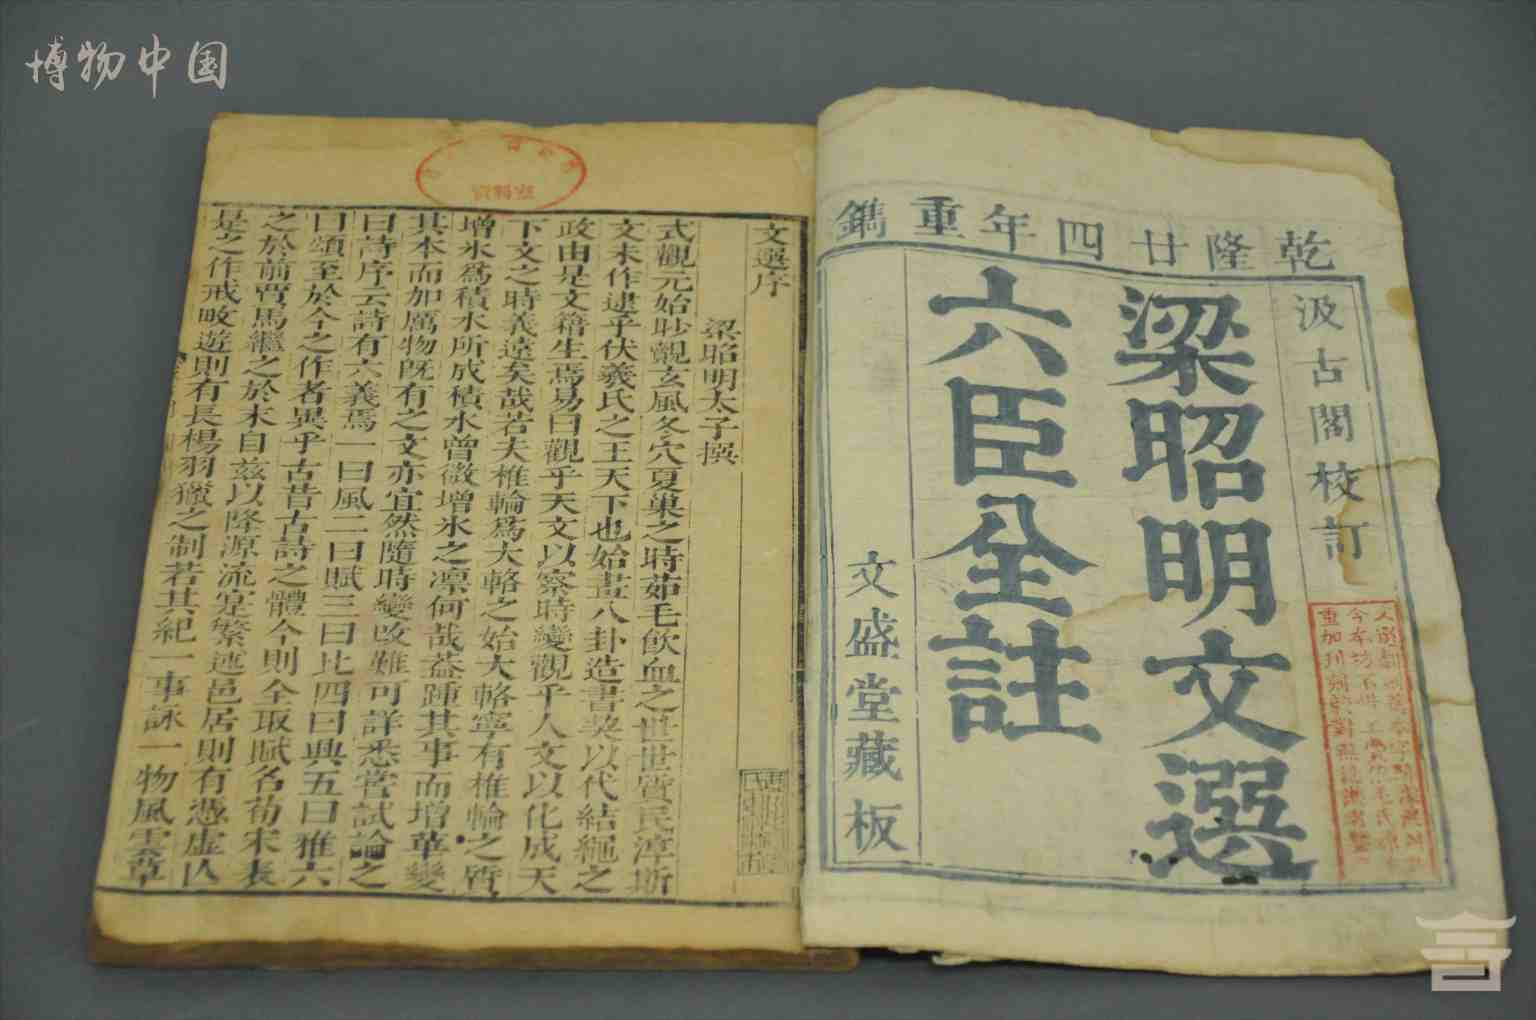 博物中国
乾隆廿四年重鐫
汲古閣校訂
梁昭明文選
六臣全註
文盛堂藏板
重加刊刻
資料室
文選序
梁昭明太子撰
式觀元始眇覿玄風冬穴夏巢之時茹毛飲血之世世質民淳斯
文未作逮乎伏羲氏之王天下也始畫八卦造書契以代結繩之
政由是文籍生焉易曰觀乎天文以察時變觀乎人文以化成天
下文之時義遠矣哉若夫椎輪爲大輅之始大輅寧有椎輪之質
增氷爲積水所成積水曾微增氷之凛何哉葢踵其事而增華變
其本而加厲物既有之文亦宜然隨時變改難可詳悉嘗試論之
曰詩序云詩有六義焉一曰風二曰賦三曰比四曰興五曰雅六
曰頌至於今之作者異乎古昔古詩之體今則全取賦名荀宋表
之於前賈馬繼之於末自兹以降源流寔繁述邑居則有憑虚亾
是之作戒畋遊則有長楊羽獵之制若其紀一事詠一物風雲草